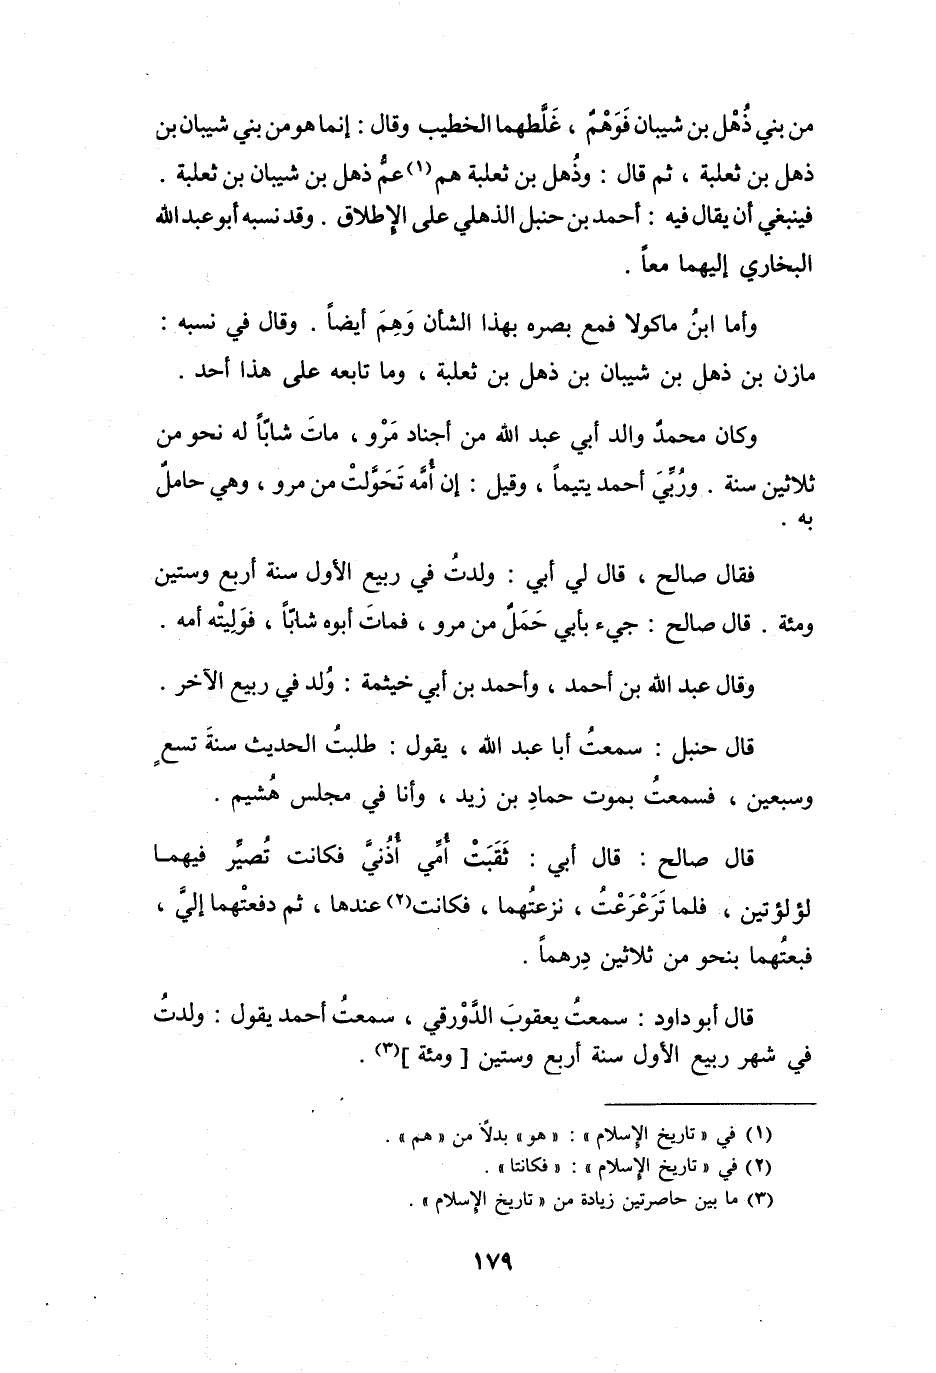 من بني ذُهْل بن شيبان فَوَهْمٌ ، غَلَّطهما الخطيب وقال : إنما هو من بني شيبان بن
ذهل بن ثعلبة ، ثم قال : وذُهل بن ثعلبة هم(١) عمُّ ذهل بن شيبان بن ثعلبة .
فينبغي أن يقال فيه : أحمد بن حنبل الذهلي على الإطلاق . وقد نسبه أبو عبد الله
البخاري إليهما معاً .
وأما ابنُ ماكولا فمع بصره بهذا الشأن وَهِمَ أيضاً . وقال في نسبه :
مازن بن ذهل بن شيبان بن ذهل بن ثعلبة ، وما تابعه على هذا أحد .
وكان محمدٌ والد أبي عبد الله من أجناد مَرْو ، ماتَ شابّاً له نحو من
ثلاثين سنة . ورُبِّيَ أحمد يتيماً ، وقيل : إن أُمَّه تَحَوَّلتْ من مرو ، وهي حاملٌ
به .
فقال صالح ، قال لي أبي : ولدتُ في ربيع الأول سنة أربع وستين
ومئة . قال صالح : جيء بأبي حَمَلٌ من مرو ، فماتَ أبوه شابّاً ، فوَلِيتْه أمه .
وقال عبد الله بن أحمد ، وأحمد بن أبي خيثمة : وُلد في ربيع الآخر .
قال حنبل : سمعتُ أبا عبد الله ، يقول : طلبتُ الحديث سنةَ تسعٍ
وسبعين ، فسمعتُ بموت حمادِ بن زيد ، وأنا في مجلس هُشيم .
قال صالح : قال أبي : ثَقَبَتْ أُمِّي أُذُنيَّ فكانت تُصيِّر فيهما
لؤلؤتين ، فلما تَرَعْرَعْتُ ، نزعتُهما ، فكانت(٢) عندها ، ثم دفعتْهما إليَّ ،
فبعتُهما بنحو من ثلاثين دِرهماً .
قال أبو داود : سمعتُ يعقوبَ الدَّوْرقي ، سمعتُ أحمد يقول : ولدتُ
في شهر ربيع الأول سنة أربع وستين [ ومئة ](٣) .
(١) في « تاريخ الإسلام » : « هو » بدلاً من « هم » .
(٢) في « تاريخ الإسلام » : « فكانتا » .
(٣) ما بين حاصرتين زيادة من « تاريخ الإسلام » .
١٧٩